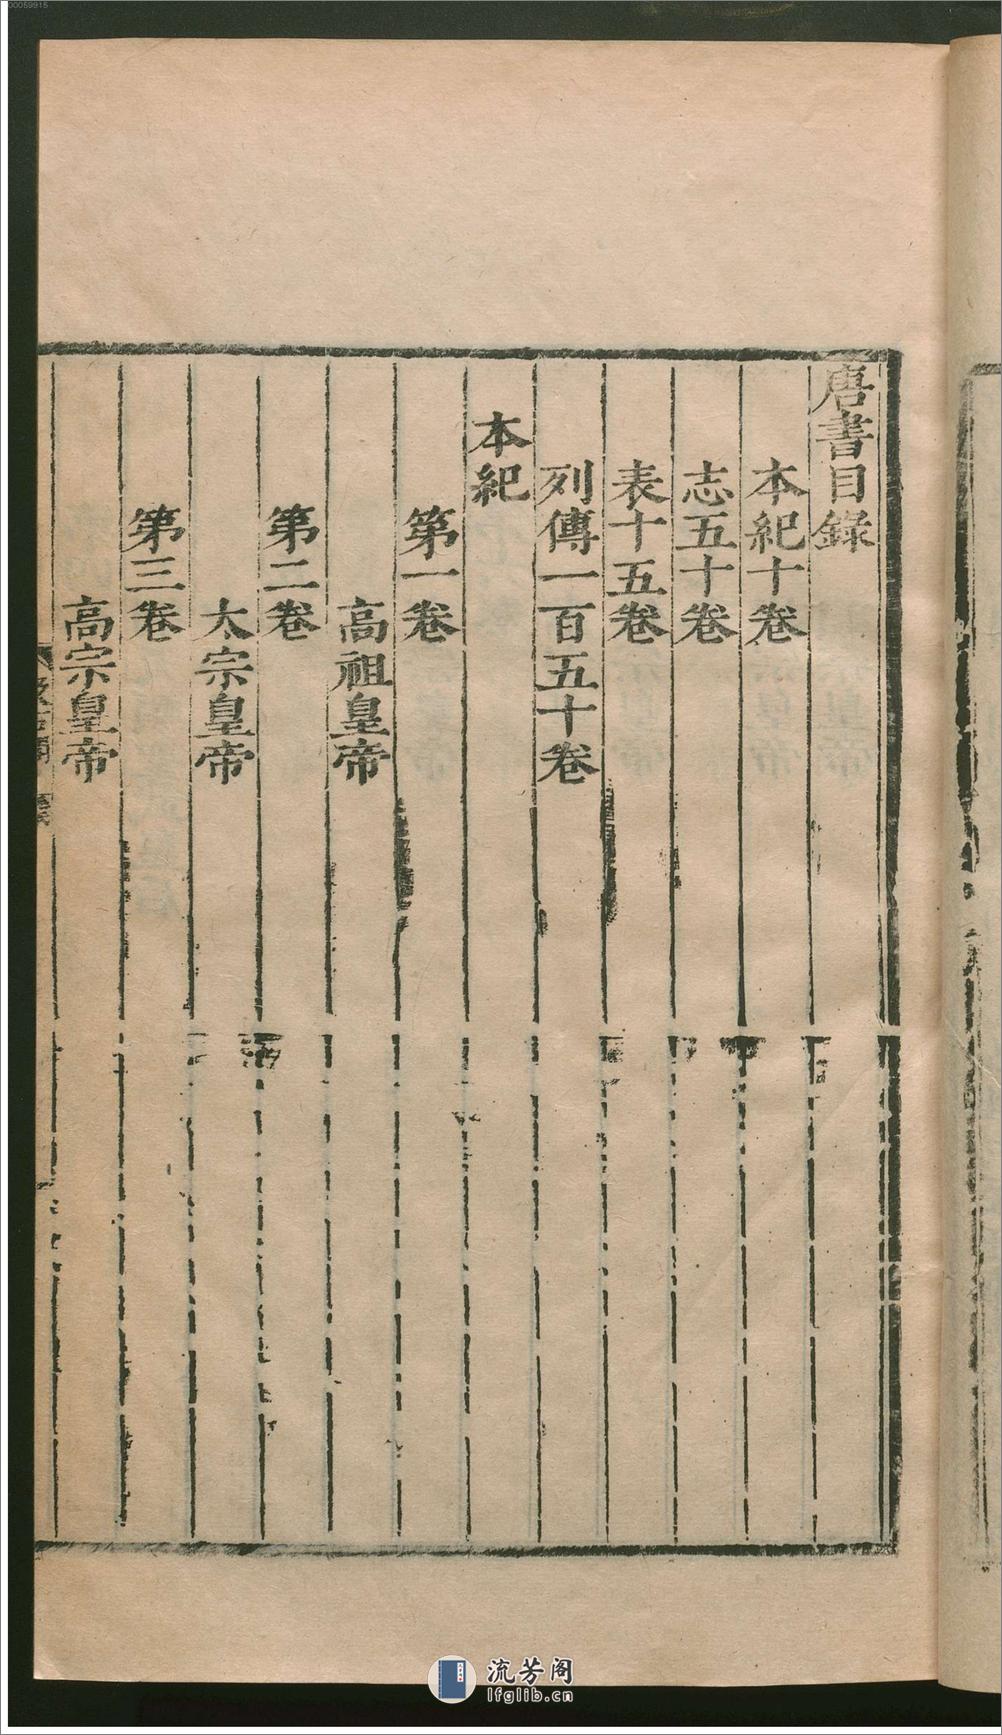 唐書目錄
本紀十卷
志五十卷
表十五卷
列傳一百五十卷
本紀
第一卷
高祖皇帝
第二卷
太宗皇帝
第三卷
高宗皇帝
流芳阁
lfglib.cn
00059915